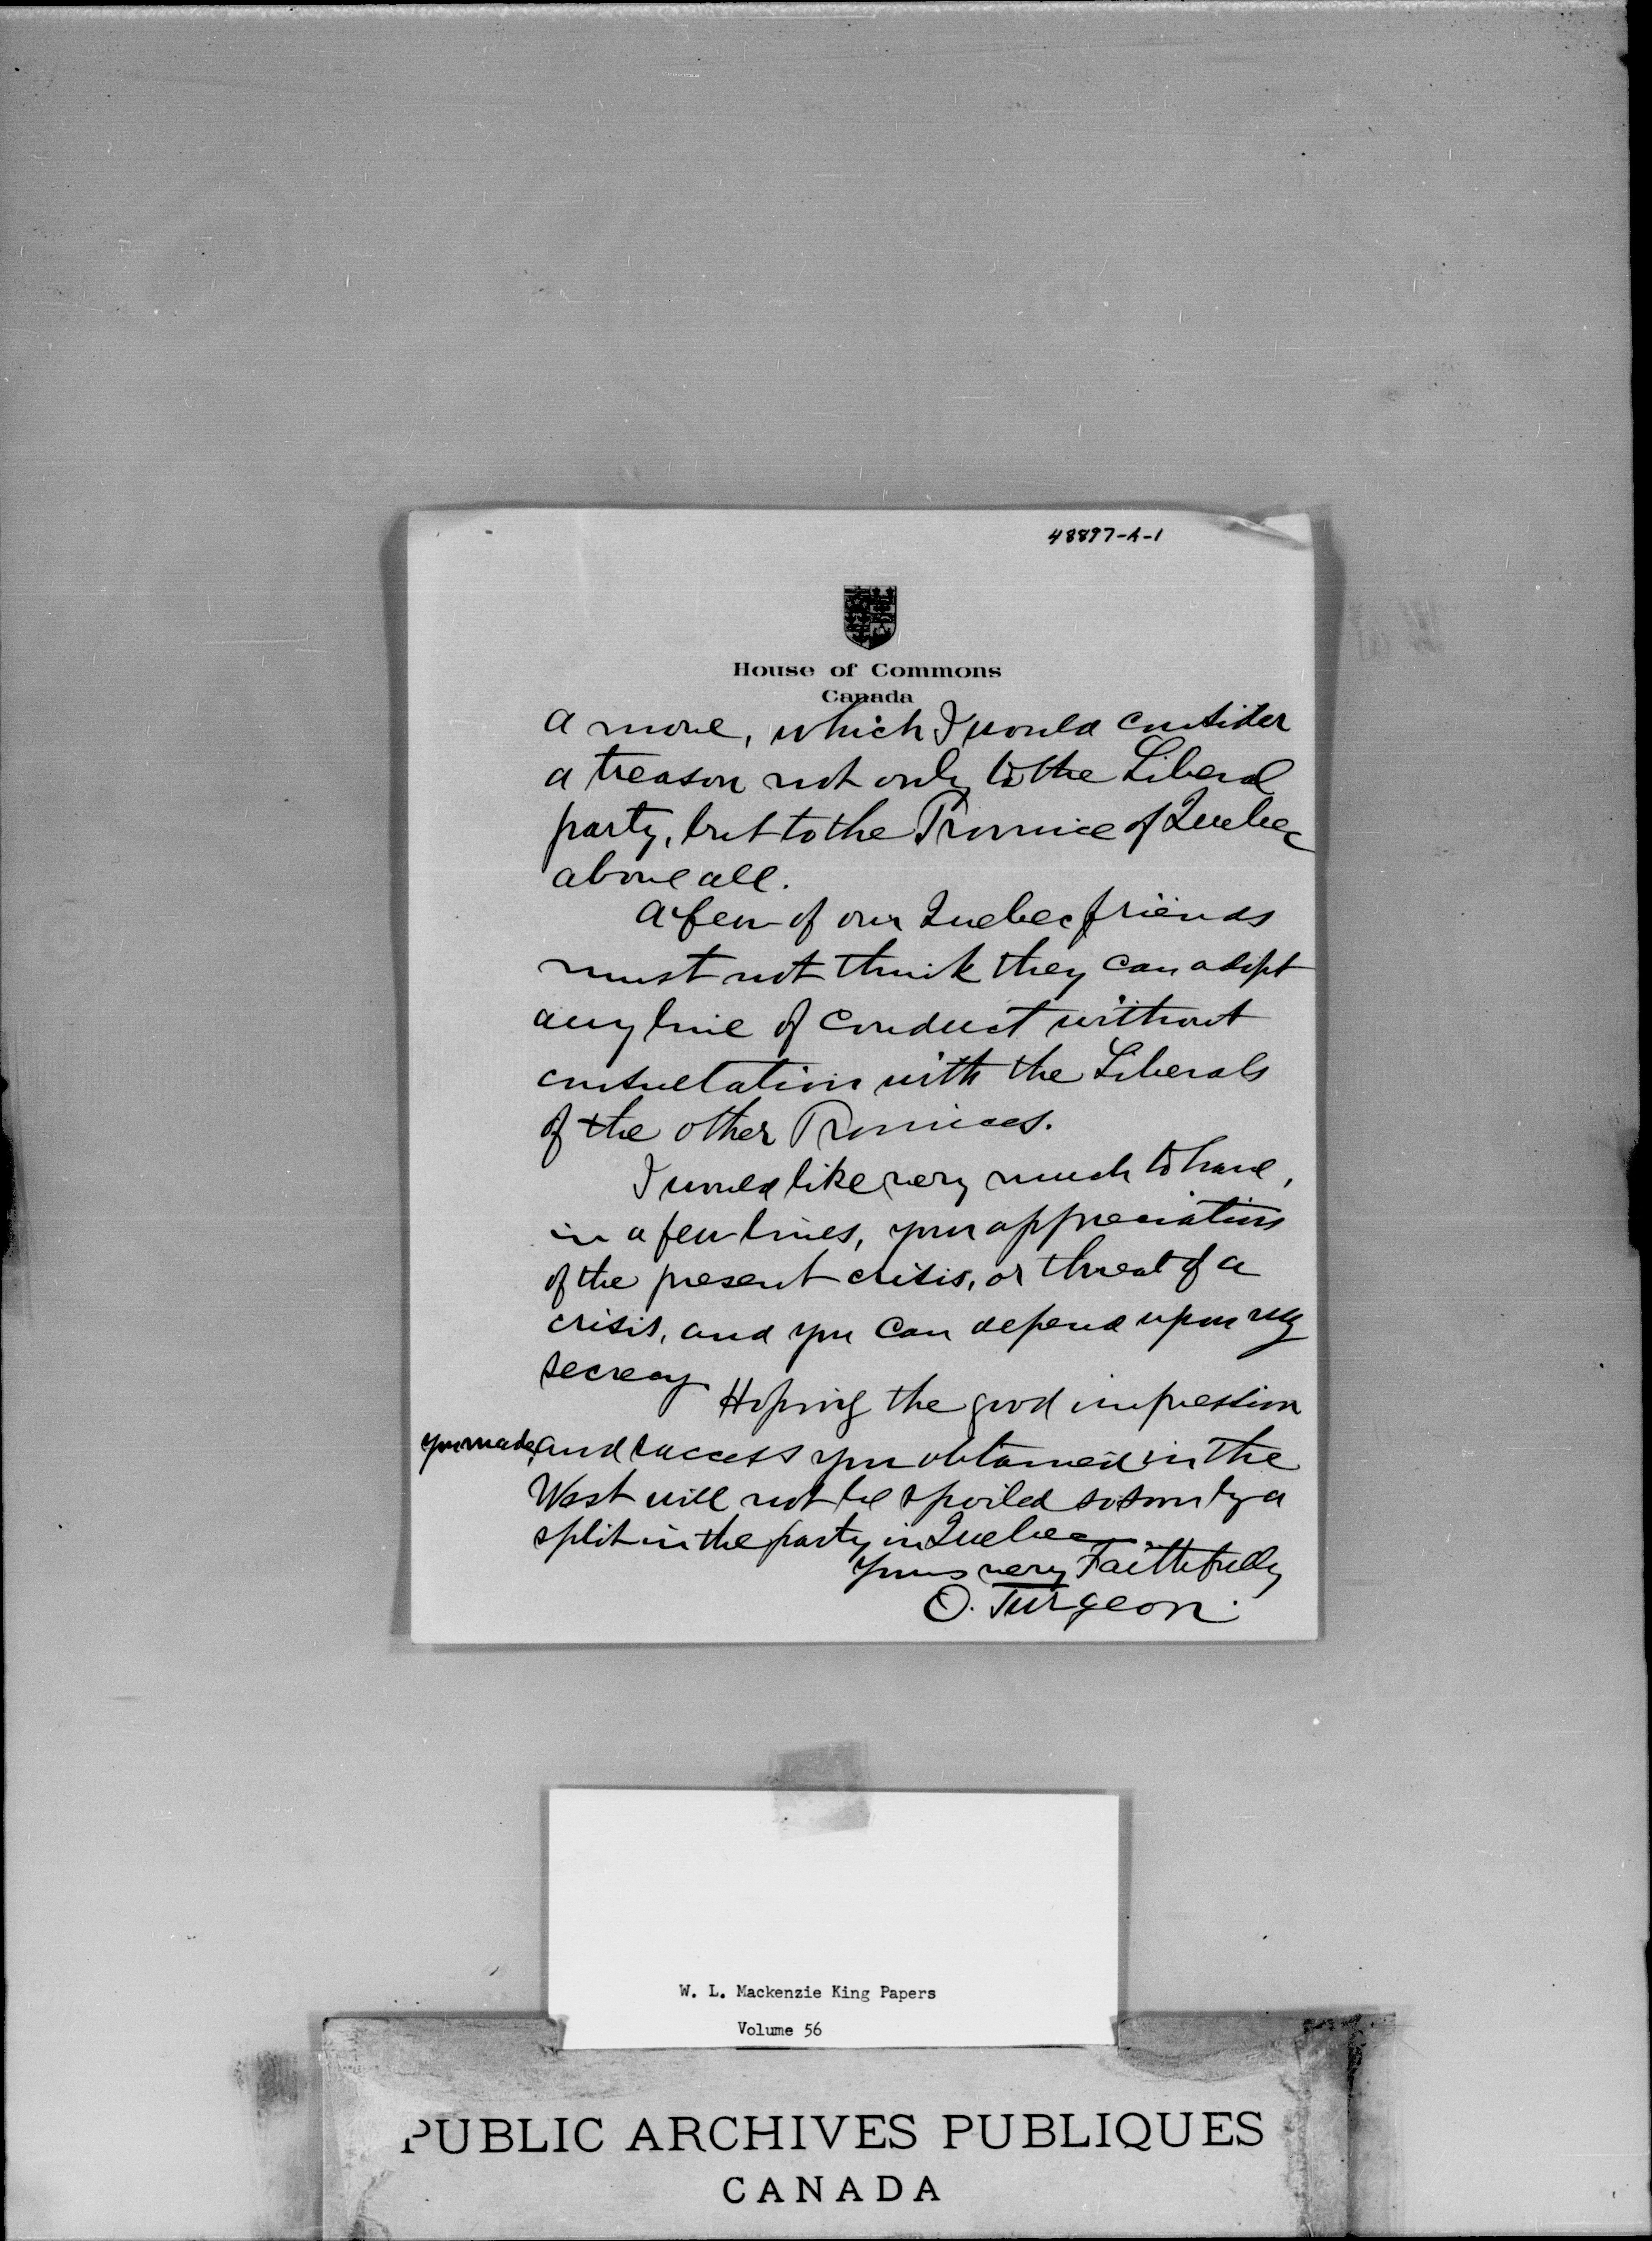 48897-A-1
House of Commons
Canada
a move, which I would consider
a treason not only to the Liberal
party, but to the Province of Quebec
above all.
A few of our Quebec friends
must not think they can adopt
any line of conduct without
consultation with the Liberals
of the other Provinces.
I would like very much to have,
in a few lines, your appreciation
of the present crisis, or threat of a
crisis, and you can depend upon my
secrecy
Hoping the good impression
you made, and success you obtained in the
West will not be spoiled so soon by a
split in the party in Quebec
Yours very Faithfully
O. Turgeon.
W. L. Mackenzie King Papers
Volume 56
PUBLIC ARCHIVES PUBLIQUES
CANADA